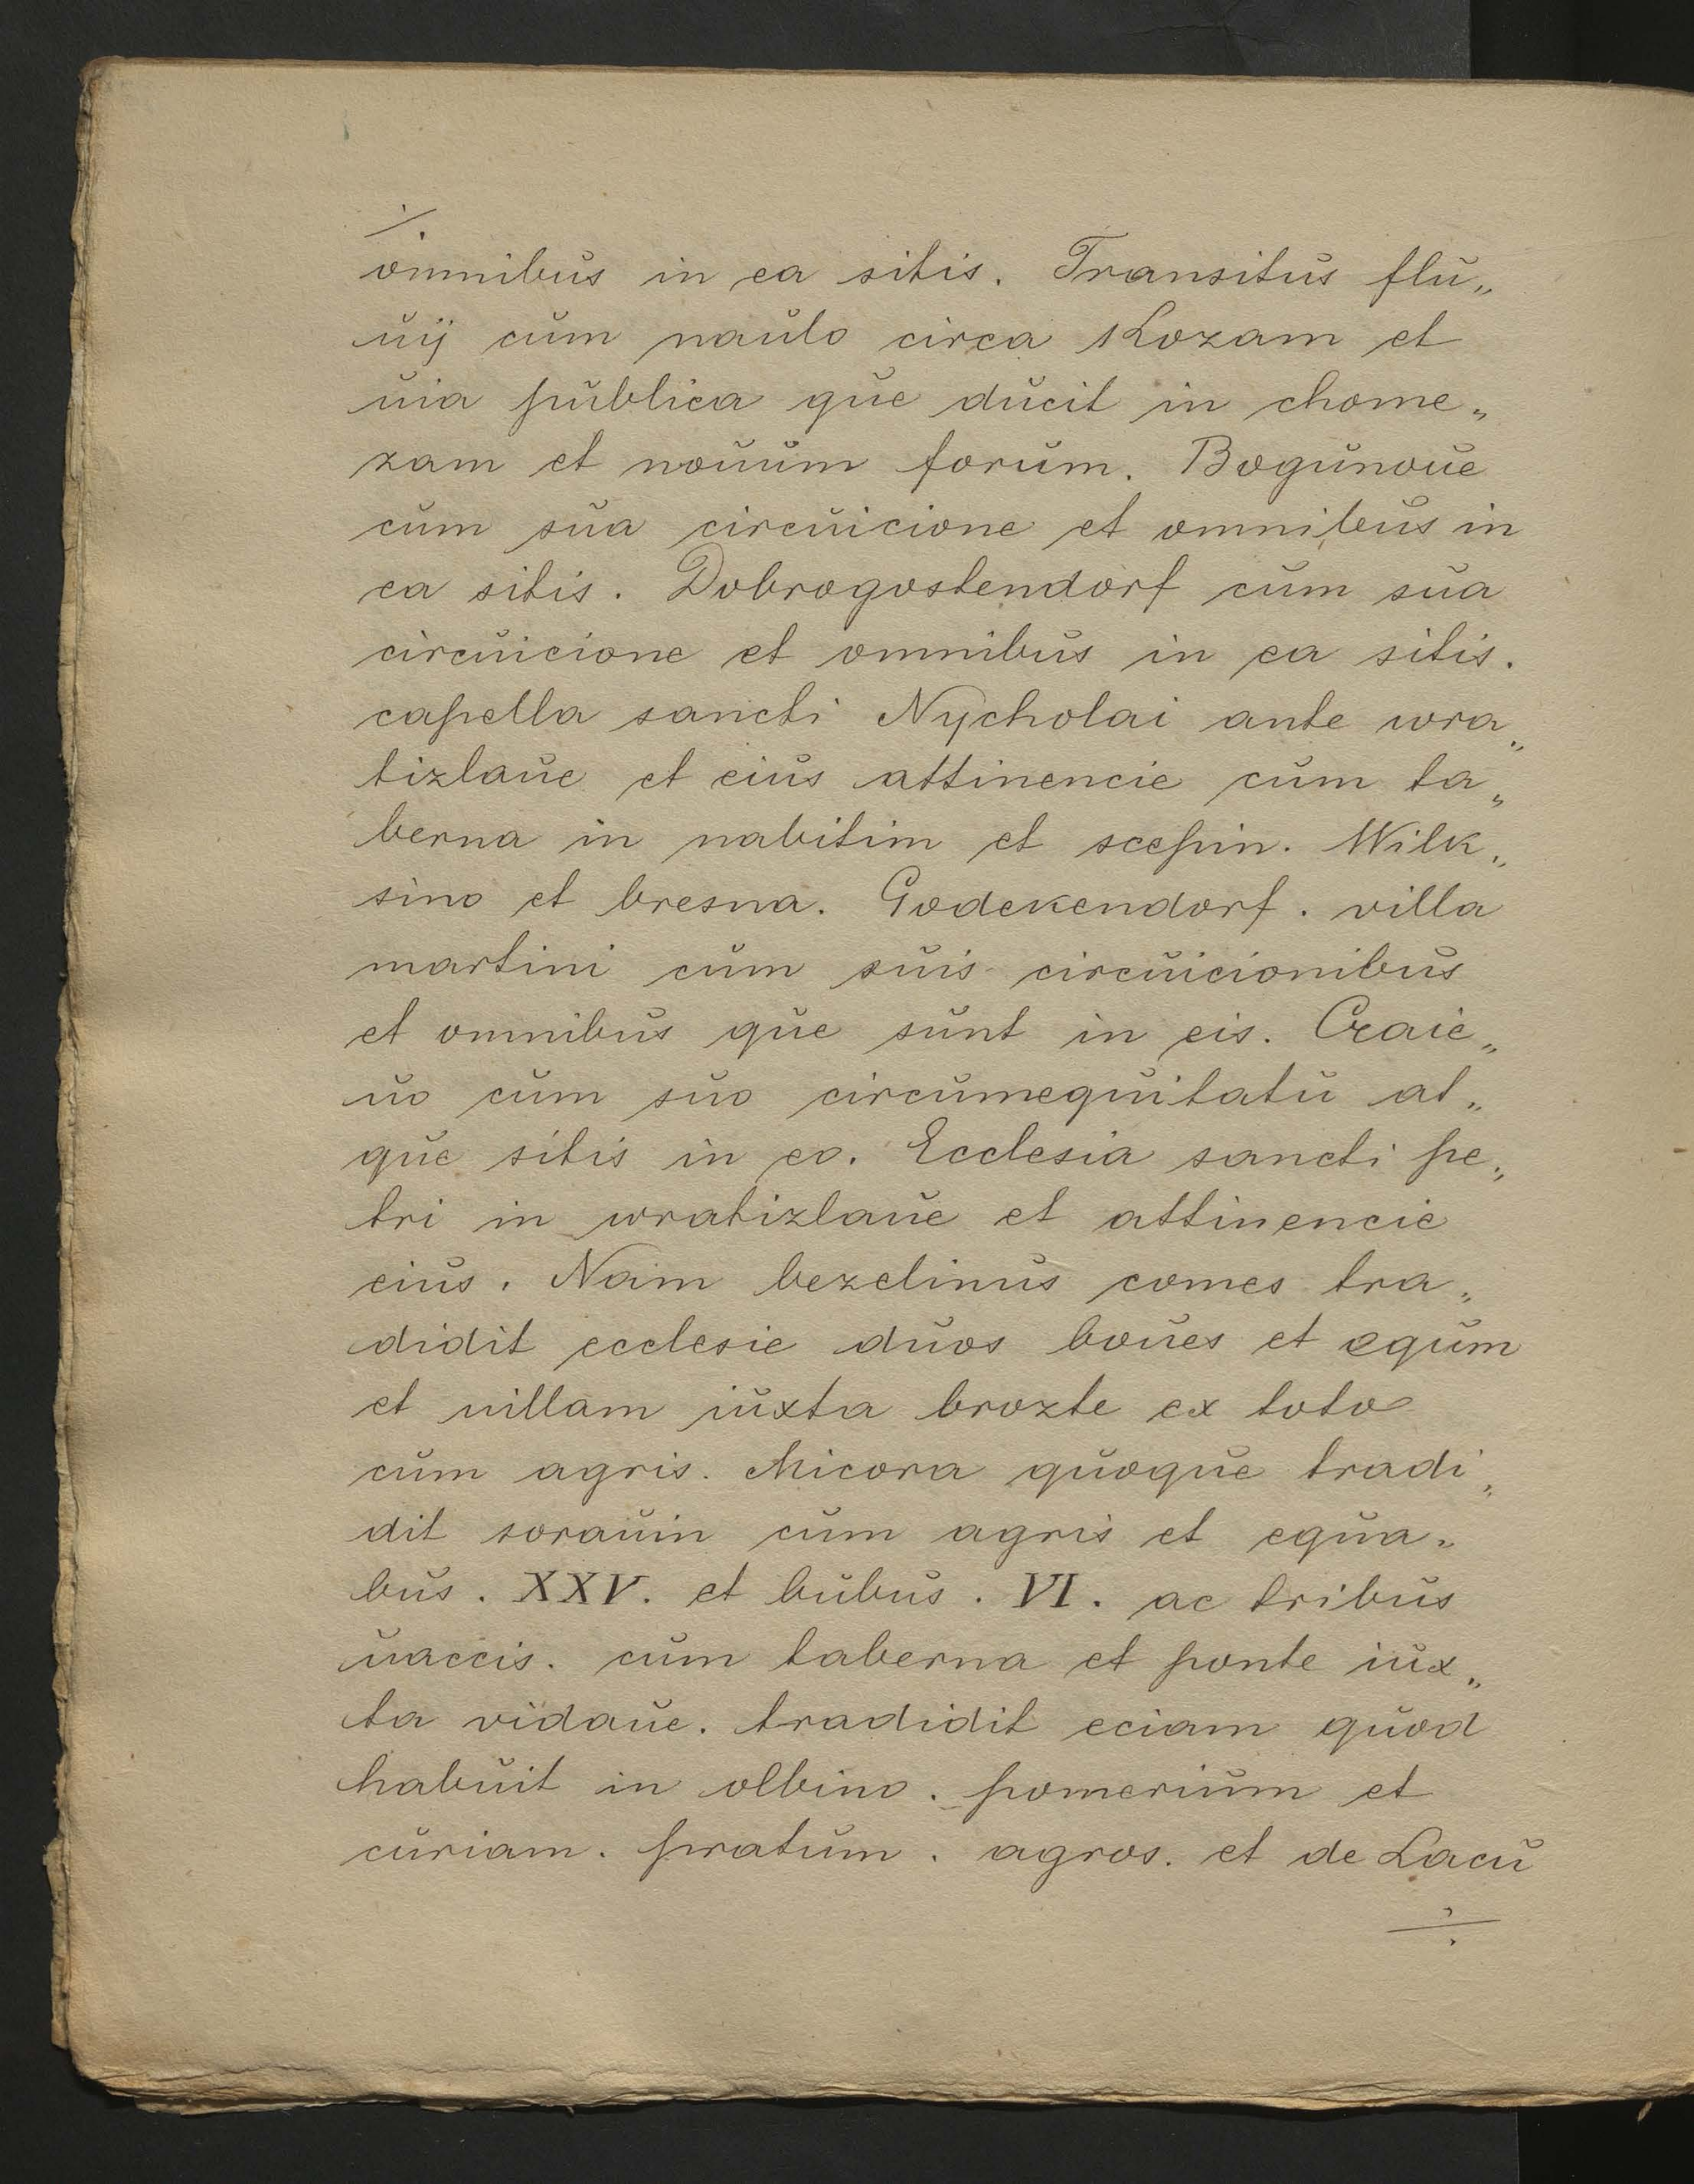 ./.
omnibus in ea sitis. Transitus flu„
uij cum naulo circa Kozam et
uia publica que ducit in chome„
zam et nouum forum. Bogunoue
cum sua circuicione et omnibus in
ea sitis. Dobrogostendorf cum sua
circuicione et omnibus in ea sitis.
capella sancti Nycholai ante wra„
tizlaue et eius attinencie cum ta„
berna in nabitim et scepin. Wilk„
sino et bresna. Godekendorf. villa
martini cum suis circuicionibus
et omnibus que sunt in eis. Craie„
uo cum suo circumequitatu at„
que sitis in eo. Ecclesia sancti pe„
tri in wratizlaue et attinencie
eius. Nam bezelinus comes tra„
didit ecclesie duos boues et equm
et uillam iuxta brozte ex toto
cum agris. Micora quoque tradi„
dit sorauin cum agris et equa„
bus. XXV. et bubus. VI. ac tribus
uaccis. cum taberna et ponte iux„
ta vidaue. tradidit eciam quod
habuit in olbino. pomerium et
curiam. pratum. agros. et de Lacu
./.